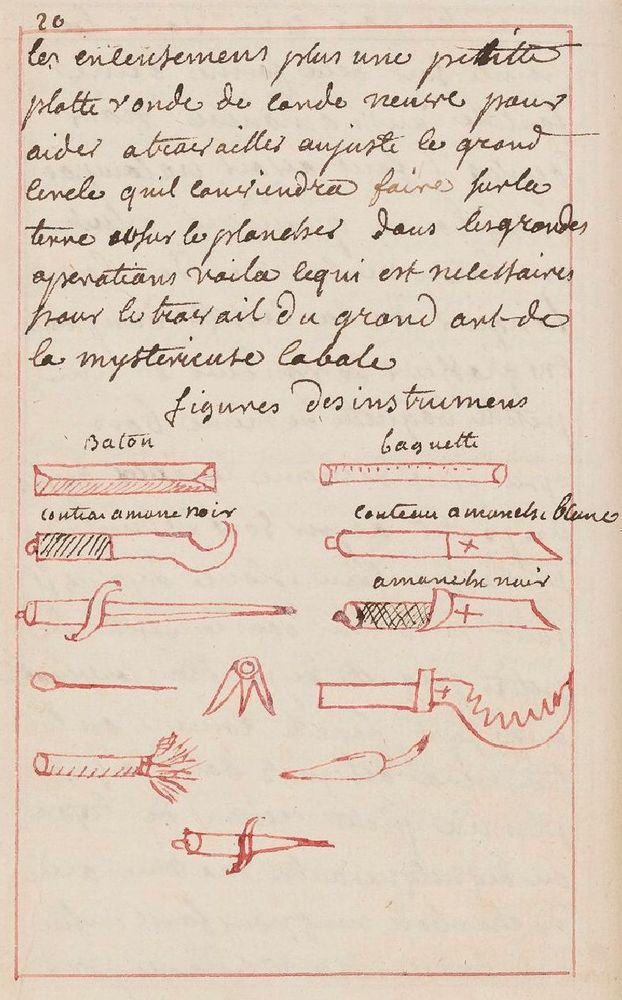 20
les encensemens plus une petitte
platte ronde de corde neuve pour
aider a travailler au juste le grand
cercle quil conviendra faire sur la
terre ou sur le plancher dans les grandes
operations voila ce qui est necessaires
pour le travail du grand art de
la mysterieuse cabale
figures des instrumens
Baton baguette
couteau a manche noir couteau a manche blanc
a manche noir